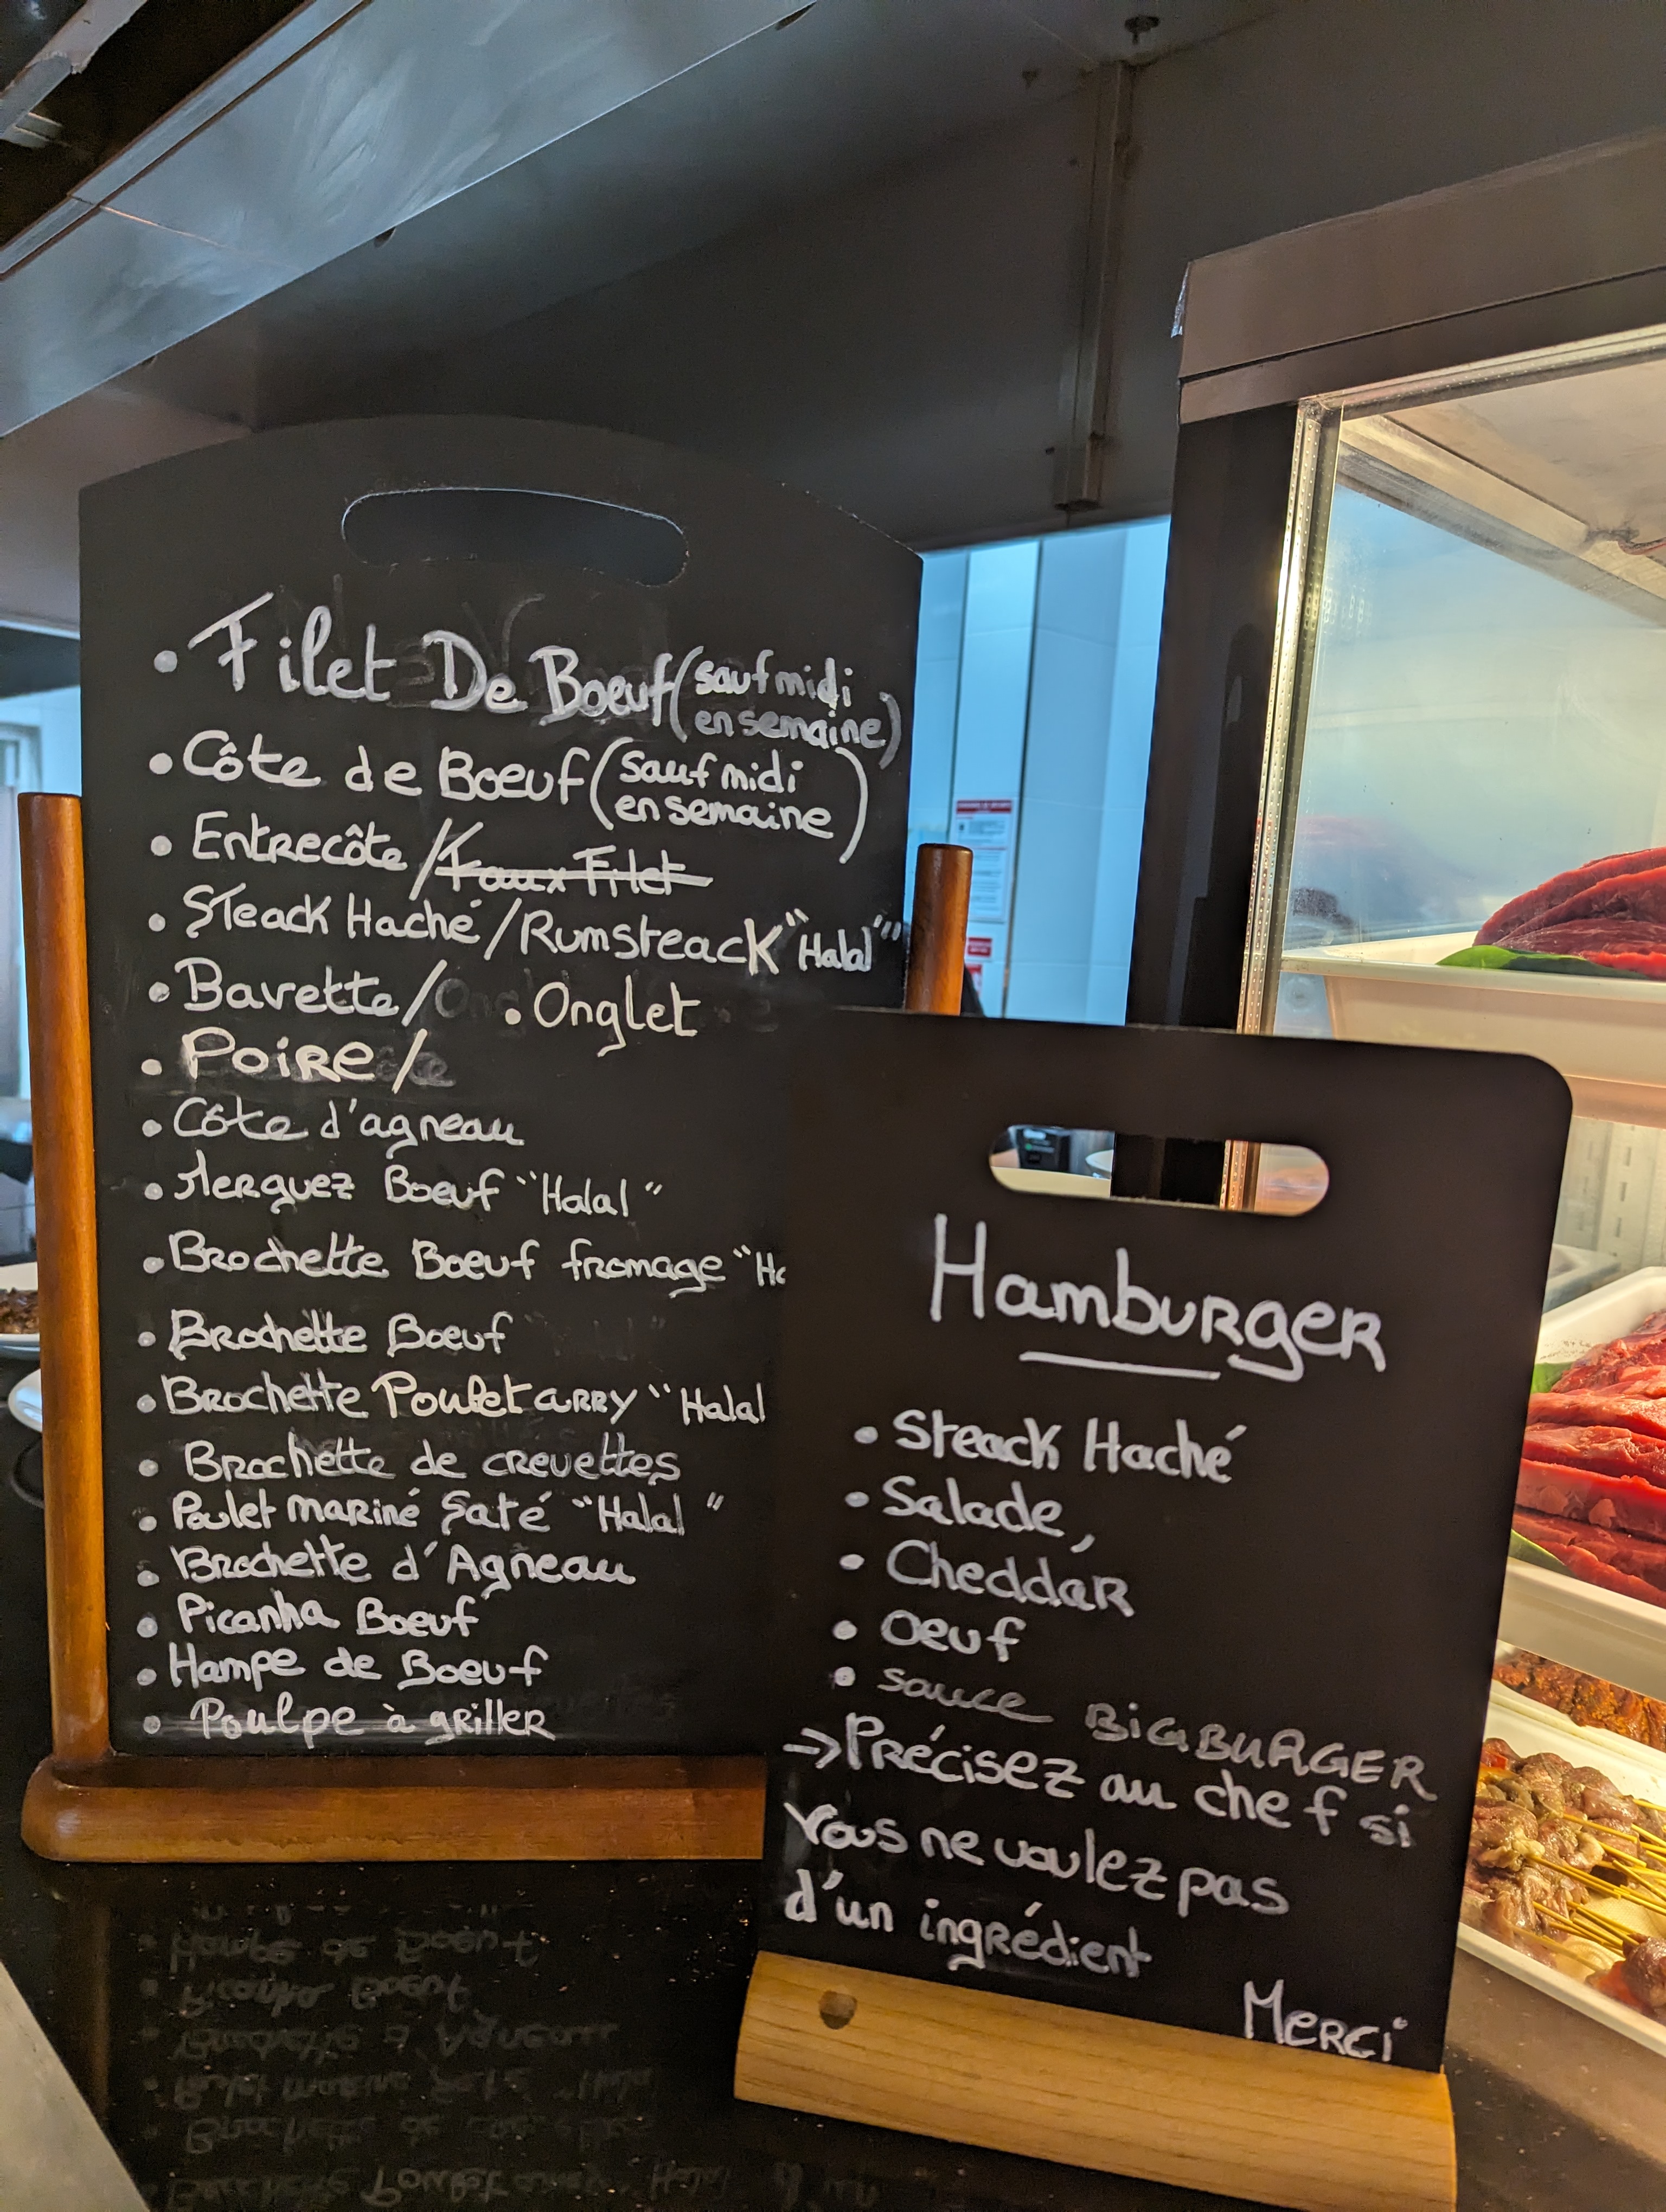 • Filet De Boeuf (sauf midi
en semaine)
• Côte de Boeuf (sauf midi
en semaine)
• Entrecôte / Faux Filet
• Steack Haché / Rumsteack "Halal"
• Bavette / • Onglet
• Poire /
• Côte d'agneau
• Merguez Boeuf "Halal"
• Brochette Boeuf fromage "Ha
• Brochette Boeuf
• Brochette Poulet curry "Halal
• Brochette de crevettes
• Poulet mariné Saté "Halal"
• Brochette d'Agneau
• Picanha Boeuf
• Hampe de Boeuf
• Poulpe à griller
Hamburger
• Steack Haché
• Salade,
• Cheddar
• Oeuf
• sauce BiGBURGER
→ Précisez au chef si
vous ne voulez pas
d'un ingrédient
Merci